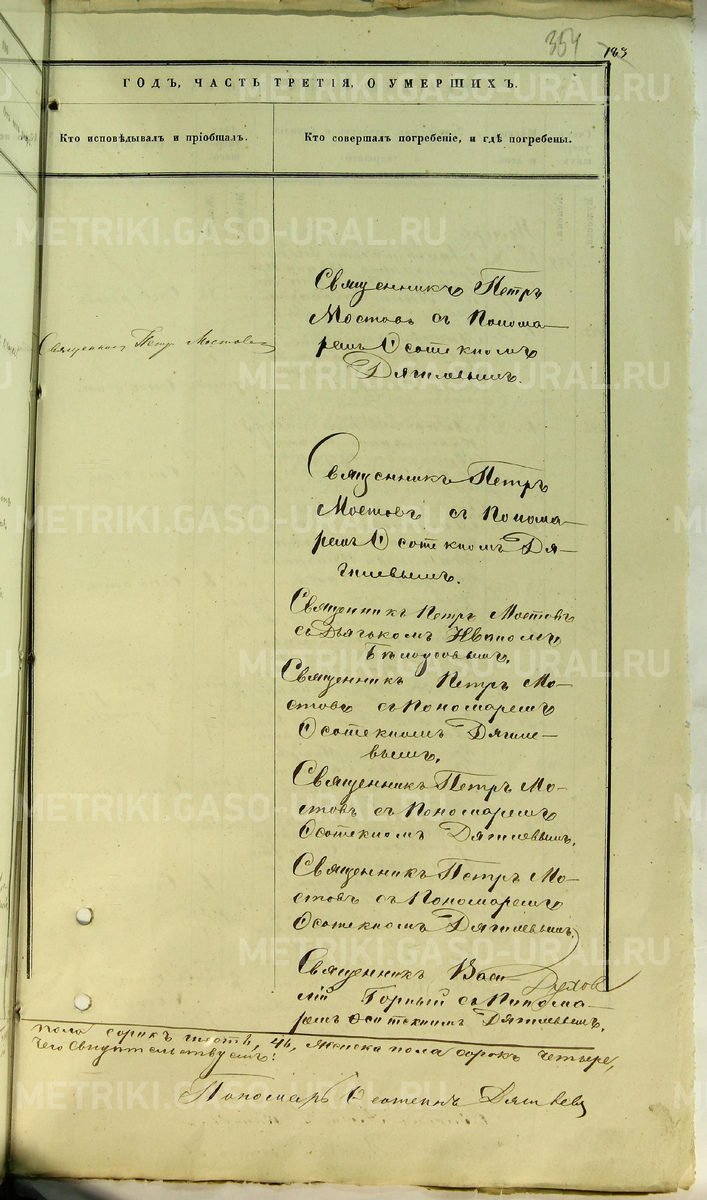 354 183
ГОДЪ, ЧАСТЬ ТРЕТІЯ, О УМЕРШИХЪ.
Кто исповѣдывалъ и пріобщалъ.
Кто совершалъ погребеніе, и гдѣ погребены.
METRIKI.GASO-URAL.RU
Священникъ Петръ Мостовъ
Священникъ Петръ
Мостовъ съ Понома-
ремъ
Дягилевымъ.
Священникъ Петръ
Мостовъ съ Понома-
ремъ Дя-
гилевымъ.
Священникъ Петръ Мостовъ
съ Дьячкомъ Иваномъ
Бѣлоусовымъ.
Священникъ Петръ Мо-
стовъ съ Пономаремъ
Дягиле-
вымъ.
Священникъ Петръ Мо-
стовъ съ Пономаремъ
Дягилевымъ.
Священникъ Петръ Мо-
стовъ съ Пономаремъ
Дягилевымъ.
Священникъ Васи
лій Горный съ Понома-
ремъ Дягилевымъ.
пола сорокъ шесть, 46, женска пола сорокъ четыре,
Чего свидѣтельствуемъ:
Пономарь Дягилевъ